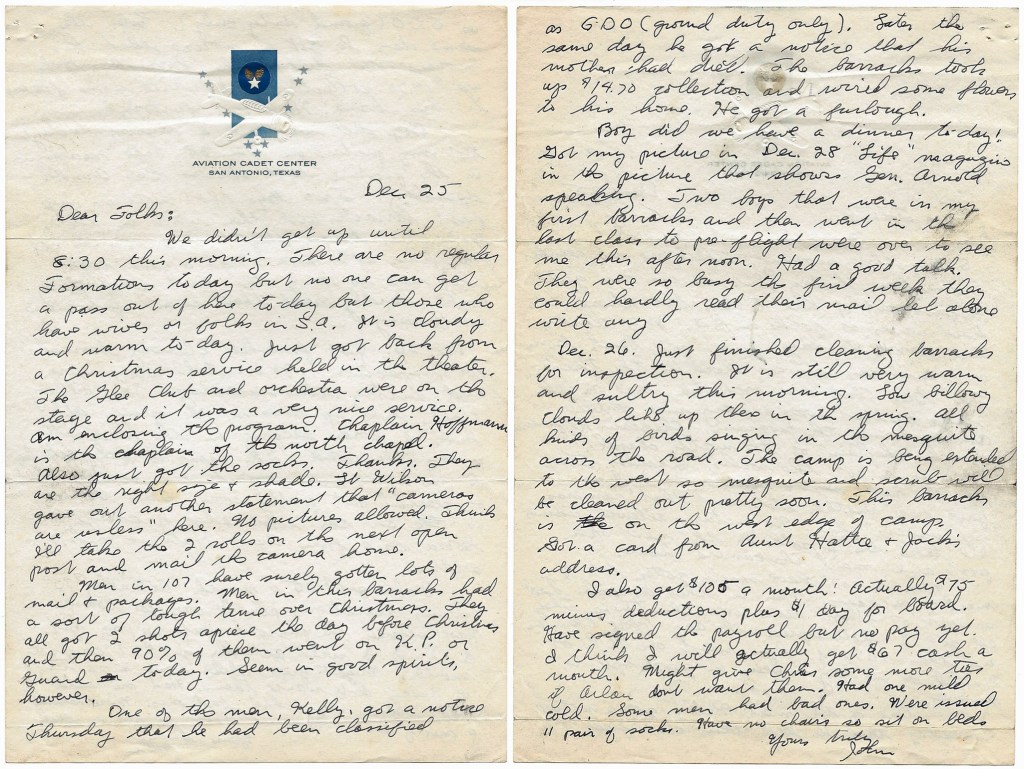 AVIATION CADET CENTER
SAN ANTONIO, TEXAS
Dec. 25
Dear Folks:
We didn't get up until
8:30 this morning. There are no regular
Formations today but no one can get
a pass out of here to-day but those who
have wives or folks in S.A. It is cloudy
and warm to-day. Just got back from
a Christmas service held in the theater.
The Glee Club and orchestra were on the
stage and it was a very nice service.
Am enclosing the program. Chaplain Hoffmann
is the chaplain of the north chapel.
Also just got the socks. Thanks. They
are the right size & shade. Lt Wilson
gave out another statement that "cameras
are useless" here. No pictures allowed. Think
I'll take the 2 rolls on the next open
post and mail the camera home.
Men in 107 have surely gotten lots of
mail & packages. Men in this barracks had
a sort of tough time over Christmas. They
all got 2 shots apiece the day before Christmas
and then 90% of them went on K.P. or
Guard to-day. Seem in good spirits,
however.
One of the men, Kelly, got a notice
Thursday that he had been classified
as GDO (ground duty only). Later the
same day he got a notice that his
mother had died. The barracks took
up $14.70 collection and wired some flowers
to his home. He got a furlough.
Boy did we have a dinner to-day!
Got my picture in Dec. 28 "Life" magazine
in the picture that shows Gen. Arnold
speaking. Two boys that were in my
first barracks and then went in the
last class to pre-flight were over to see
me this afternoon. Had a good talk.
They were so busy the first week they
could hardly read their mail let alone
write any
Dec. 26. Just finished cleaning barracks
for inspection. It is still very warm
and sultry this morning. Low billowy
clouds like up there in the spring. All
kinds of birds singing in the mesquite
across the road. The camp is being extended
to the west so mesquite and scrub will
be cleaned out pretty soon. This barracks
is on the west edge of camp.
Got a card from Aunt Hattie & Jack's
address.
I also get $105 a month! Actually $75
minus deductions plus $1 day for board.
Have signed the payroll but no pay yet.
I think I will actually get $67 cash a
month. Might give Chas some more ties
if Arlan don't want them. Had one mild
cold. Some men had bad ones. Were issued
11 pair of socks. Have no chairs so sit on beds
Yours truly
John